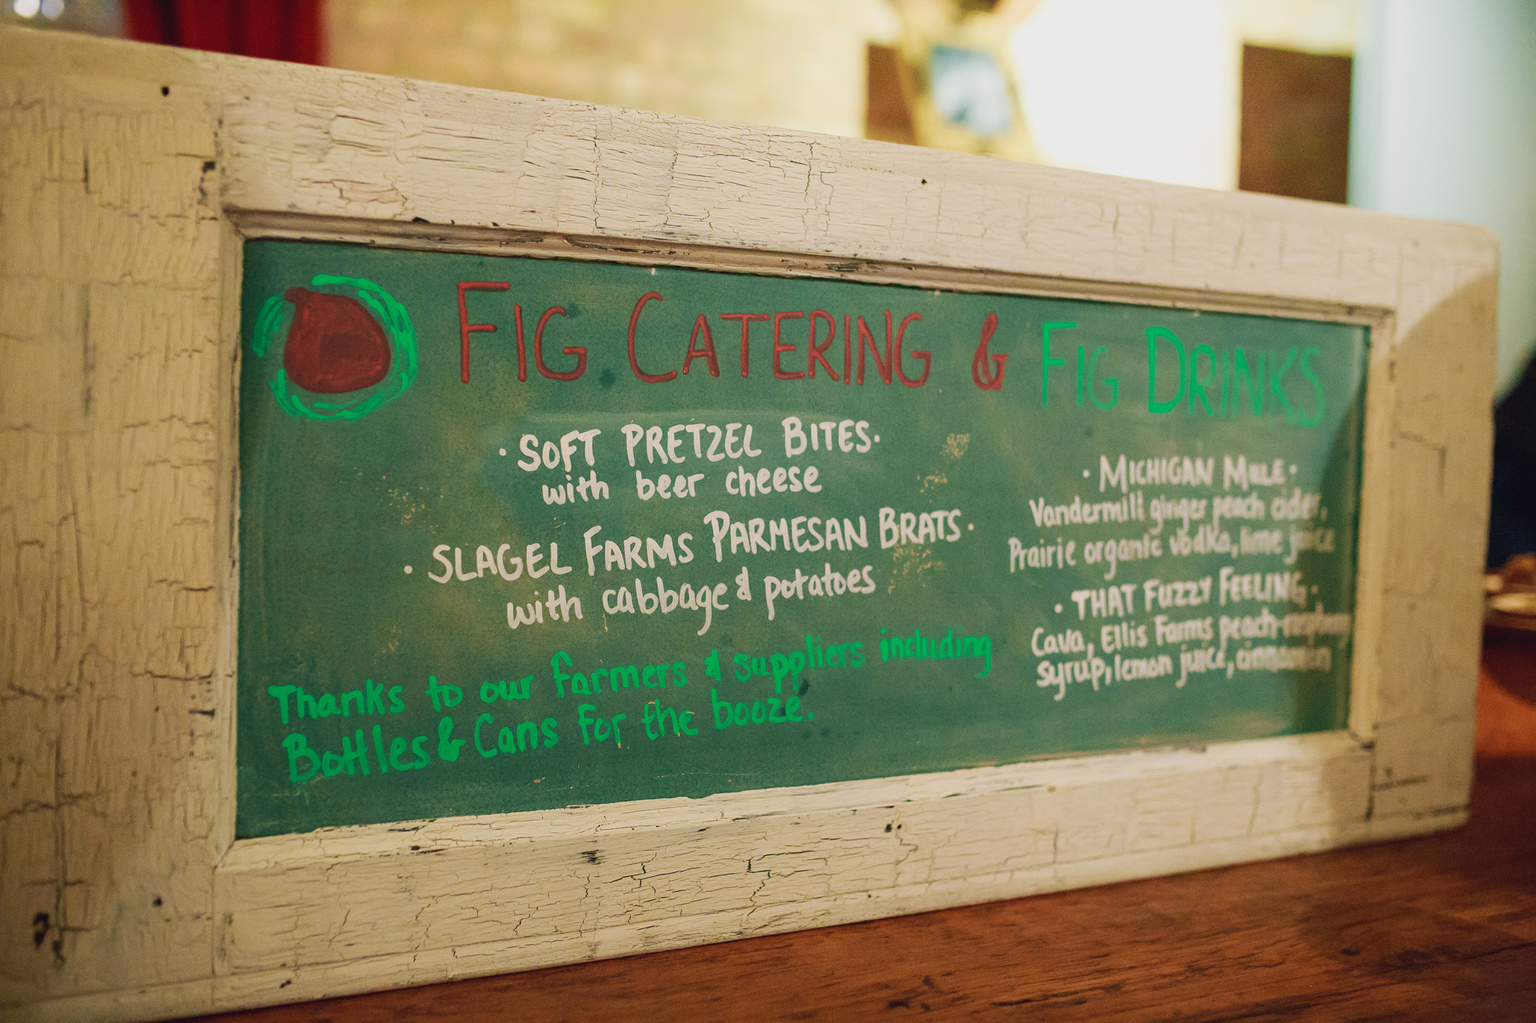 FIG CATERING & FIG DRINKS
· SOFT PRETZEL BITES ·
with beer cheese
· SLAGEL FARMS PARMESAN BRATS ·
with cabbage & potatoes
Thanks to our farmers & suppliers including
Bottles & Cans for the booze.
· MICHIGAN MULE ·
Vandermill ginger peach cider,
Prairie organic vodka, lime juice
· THAT FUZZY FEELING ·
Cava, Ellis Farms peach-raspberry
syrup, lemon juice, cinnamon